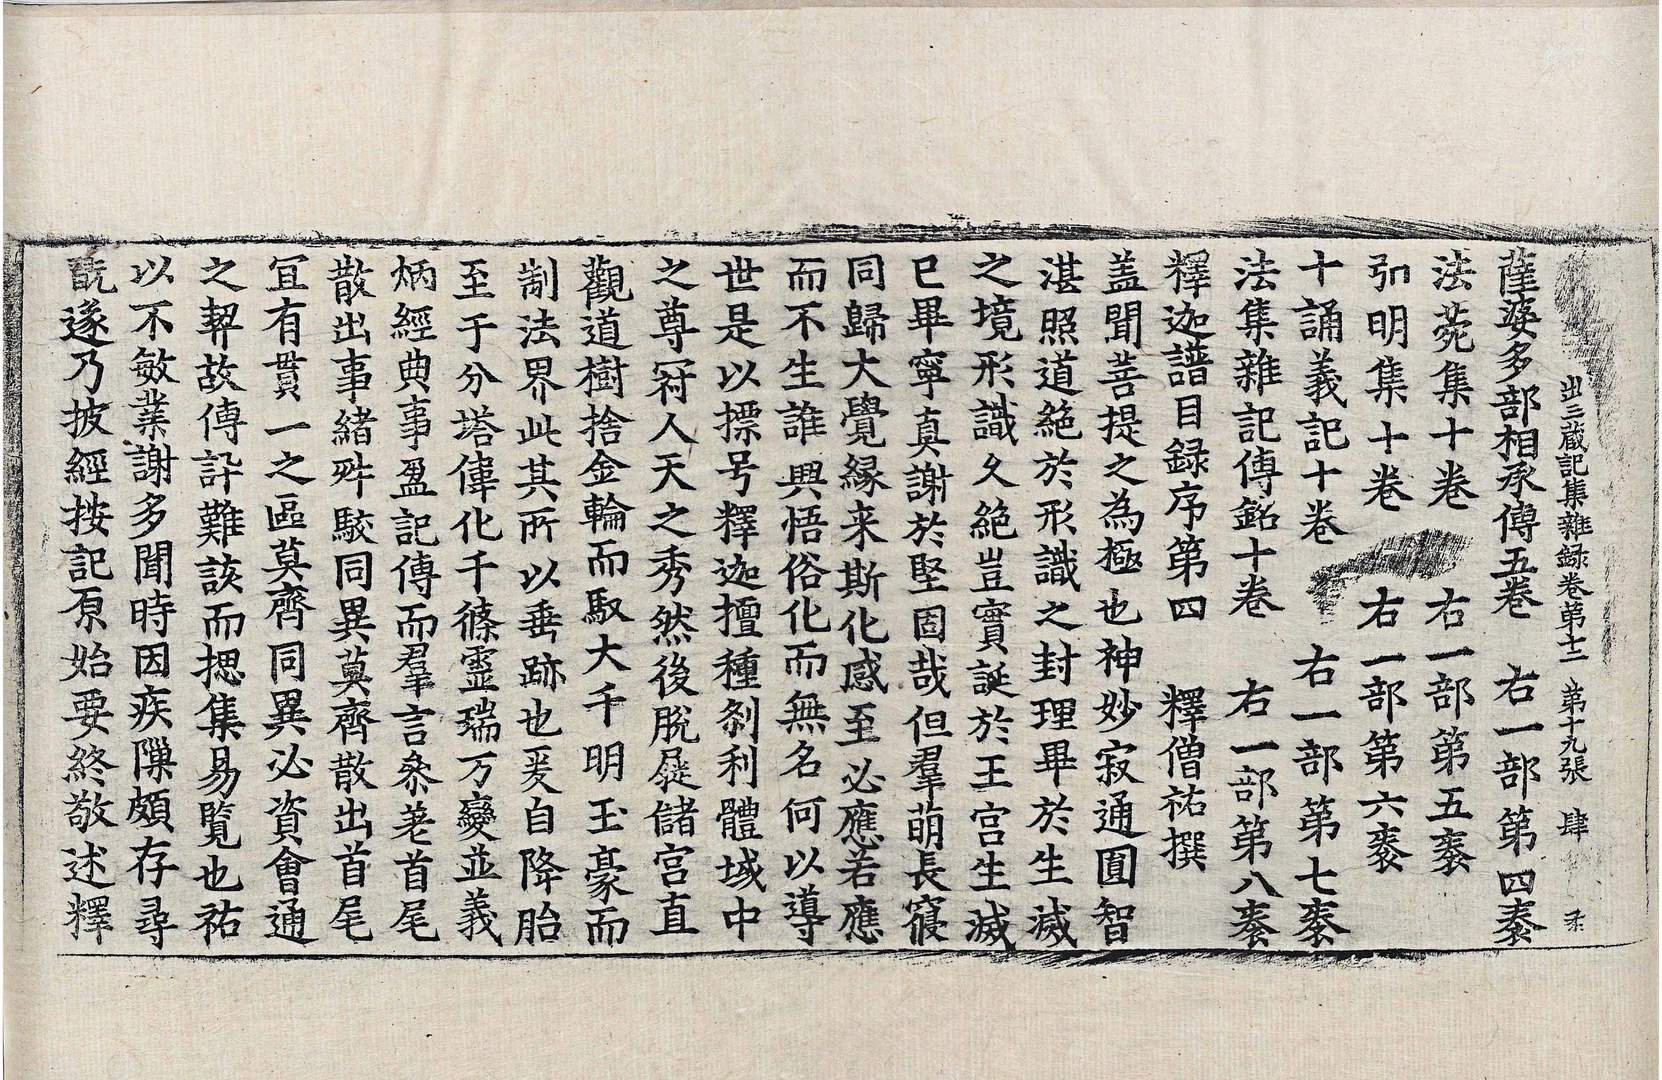 出三蔵記集雜録卷第十二 第十九張 肆
薩婆多部相承傳五卷 右一部第四袠
法菀集十卷 右一部第五袠
弘明集十卷 右一部第六袠
十誦義記十卷 右一部第七袠
法集雜記傳銘十卷 右一部第八袠
釋迦譜目録序第四 釋僧祐撰
盖聞菩提之為極也神妙寂通圓智
湛照道絶於形識之封理畢於生滅
之境形識久絶豈實誕於王宮生滅
已畢寧真謝於堅固哉但羣萌長寢
同歸大覺縁来斯化感至必應若應
而不生誰興悟俗化而無名何以導
世是以摽号釋迦擅種剎利體域中
之尊冠人天之秀然後脫屣儲宮直
觀道樹捨金輪而馭大千明玉豪而
制法界此其所以垂跡也爰自降胎
至于分塔偉化千條靈瑞万變並義
炳經典事盈記傳而羣言叅差首尾
散出事緒舛駮同異莫齊散出首尾
冝有貫一之區莫齊同異必資會通
之契故傳訃難該而揔集易覽也祐
以不敏業謝多聞時因疾隟頗存尋
翫遂乃披經按記原始要終敬述釋